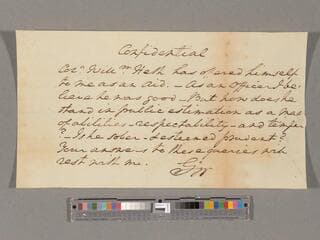 Confidential
Colo. Willm. Heth has offered himself
to me as an aid. – As an officer I be-
lieve he was good – But how does he
stand in public estimation as a man
of abilities – respectability – and temper
? – Is he sober – esteemed prudent?
Your answers to these queries will
rest with me.
GW